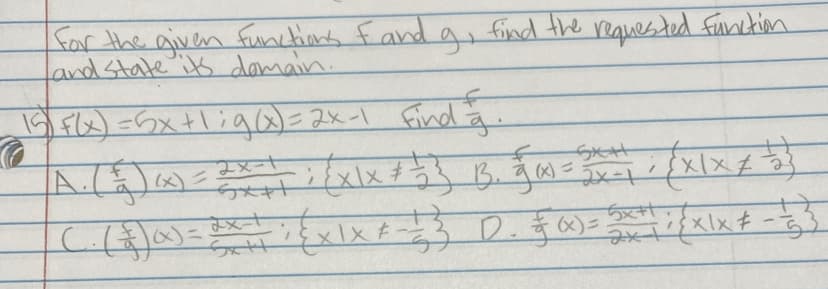 For the given functions f and g, find the requested function
and state its domain.
15) f(x) = 5x+1 ; g(x) = 2x-1 Find f/g.
A. (f/g)(x) = 2x-1/5x+1 ; {x|x ≠ 1/2} B. f/g (x) = 5x+1/2x-1 ; {x|x ≠ 1/2}
C. (f/g)(x) = 2x-1/5x+1 ; {x|x ≠ -1/5} D. f/g (x) = 5x+1/2x-1 ; {x|x ≠ -1/5}